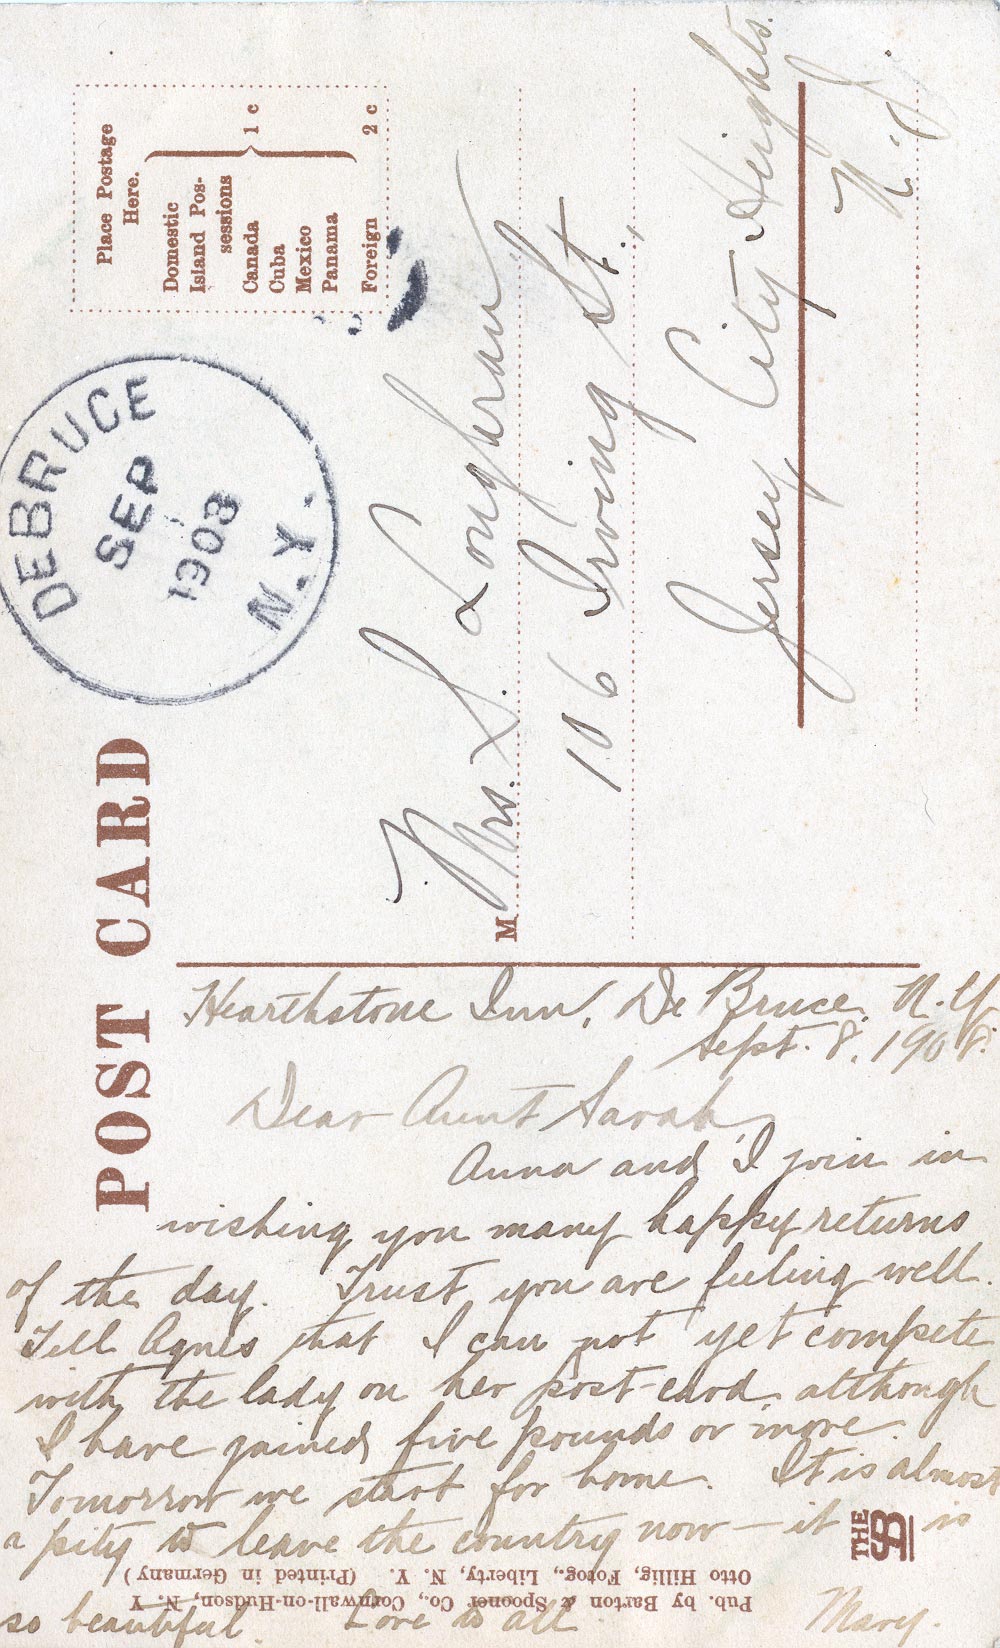 POST CARD
Place Postage
Here.
Domestic
Island Pos-
sessions
Canada
Cuba
Mexico
Panama
1 c
Foreign 2 c
DEBRUCE
SEP
1908
N.Y.
M Mrs. S. Loughran
106 Irving St.,
Jersey City Heights.
N. J.
Hearthstone Inn, De Bruce, N.Y.
Sept. 8, 1908.
Dear Aunt Sarah,
Anna and I join in
wishing you many happy returns
of the day. Trust you are feeling well.
Tell Agnes that I can not yet compete
with the lady on her post-card although
I have gained five pounds or more.
Tomorrow we start for home. It is almost
a pity to leave the country now — it is
so beautiful. Love to all Mary.
Pub. by Barton & Spooner Co., Cornwall-on-Hudson, N. Y.
Otto Hillig, Fotog., Liberty, N. Y. (Printed in Germany)
THE